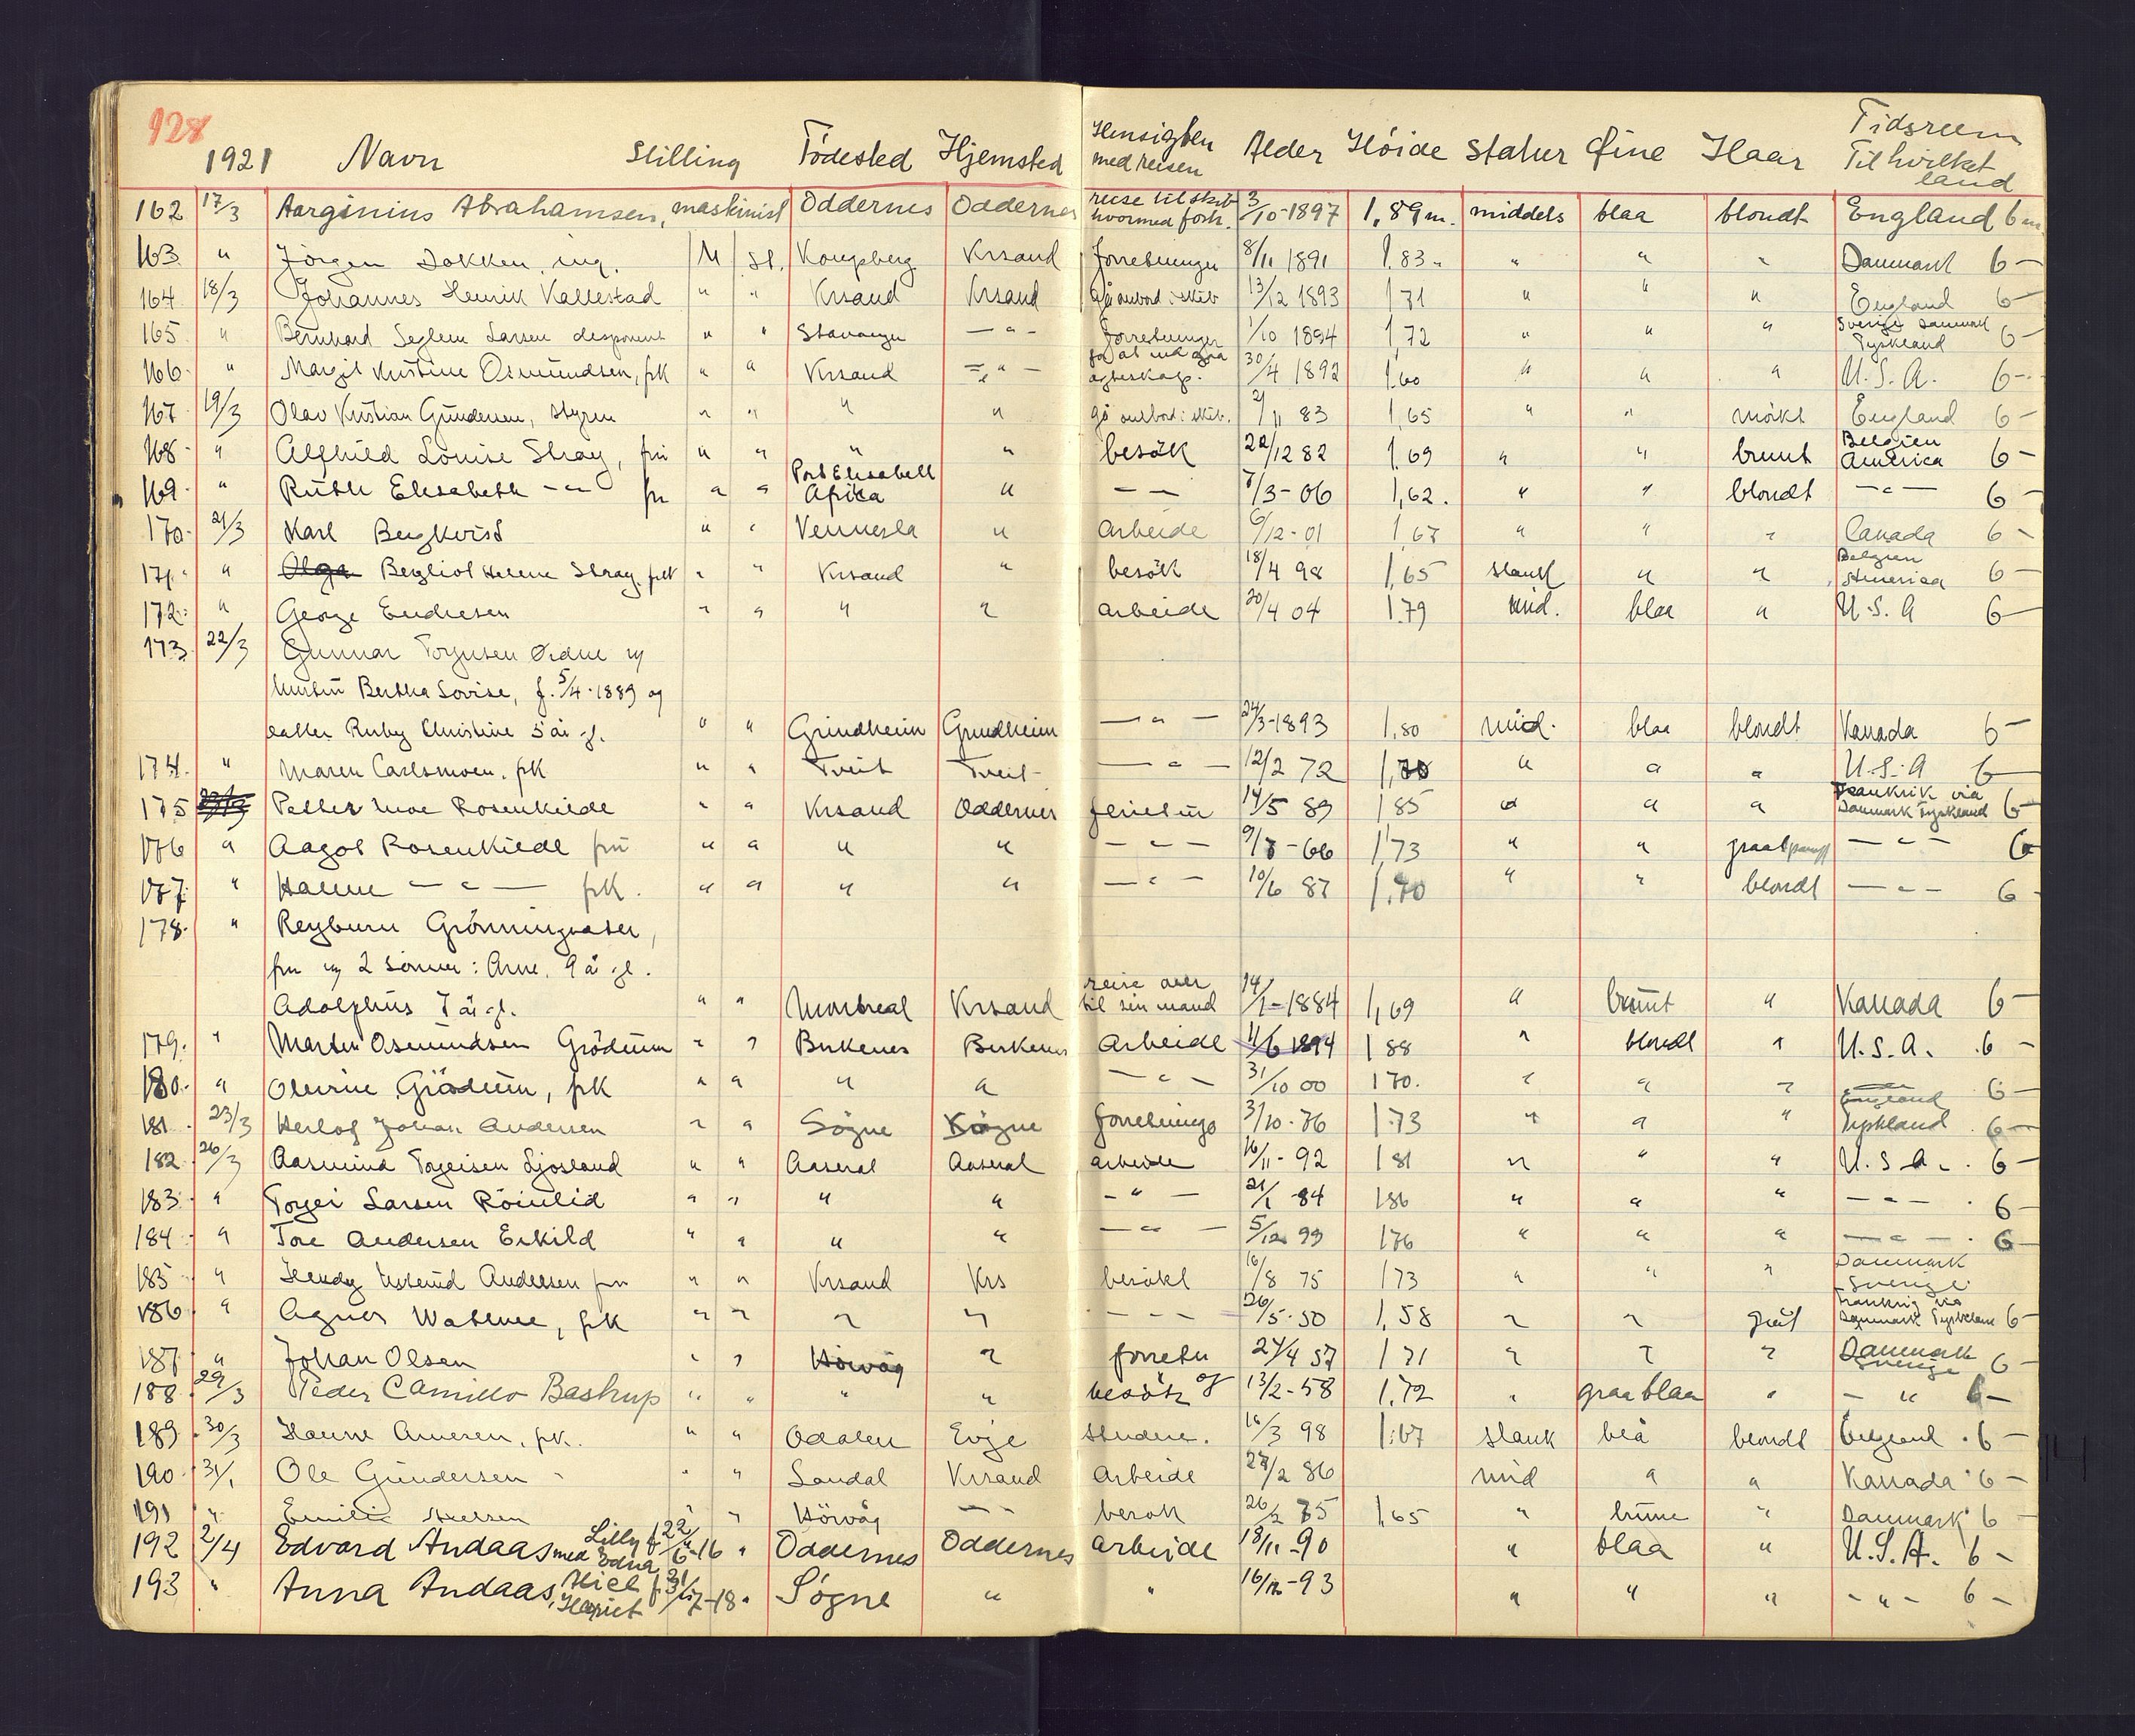 928
1921 Navn Stilling Födested Hjemsted Hensigten med reisen Alder Höide Statur Øine Haar Tidsrum Til hvilket land
162 17/3 Aarginius Abrahamsen, maskinist Oddernes Oddernes reise til skib hvormed forh. 3/10-1897 1,89 m. middels blaa blondt England 6 m.
163 " Jörgen Dokken, ing. M st. Kongsberg Krsand forretninger 8/11 1891 1.83 " " " " Danmark 6 -
164 18/3 Johannes Henrik Kallestad " " Krsand Krsand gå ombord i skib 13/12 1893 1 71 " " " England 6 -
165 " Bernhard Seglem Larsen disponent " " Stavanger - " - forretninger 1/10 1894 1 72 " " " Sverige Danmark Tyskland 6 -
166 " Margit Kristine Osmundsen, frk " " Krsand - " - for at indgaa ægteskap. 30/4 1892 1.60 " " " U.S.A. 6 -
167 19/3 Olav Kristian Gundersen, styrm " " " " gå ombord i skib. 2/11 83 1,65 " " mörkt England 6 -
168 " Alfhild Louise Stray, fru " " " " besök 22/12 82 1.69 " " brunt Belgien America 6 -
169 " Ruth Elisabeth - " - frk " " Port Elisabeth Afrika " - - 7/3-06 1,62. " " blondt - " - 6 -
170 21/3 Karl Bergkvist " " Vennesla " Arbeide 6/12-01 1,67 " " " Canada 6 -
171 " Bergliot Helene Stray, frk " " Krsand " besök 18/4 98 1,65 slank " " Belgien America 6 -
172 " George Endresen " " " " arbeide 20/4 04 1.79 mid. blaa " U.S.A 6 -
173 22/3 Gunnar Torjusen Ødne og
hustru Bertha Lovise, f. 5/4-1889 og
datter Ruby Christine 5 år gl. " " Grindheim Grindheim - " - 24/3-1893 1.80 mid. blaa blondt Kanada 6 -
174 " Maren Carlsmoen, frk " " Tveit Tveit - " - 12/2 72 1,70 " " " U.S.A 6 -
175 Petter Moe Rosenkilde " " Krsand Oddernes ferietur 14/5 89 1 85 " " " Frankrik via Danmark Tyskland 6 -
176 " Aagot Rosenkilde fru " " " " - " - 9/8-66 1,73 " " graasprengt - " - 6
177 " Hanne - " - frk. " " " " - " - 10/6 87 1.70 " " blondt - " - 6
178 " Reyburn Grönningsæter,
fru og 2 sönner: Arne, 9 å gl.
Adolphus 7 år gl. " " Montreal Krsand reise over til sin mand 14/1-1884 1,69 " brunt " Kanada 6 -
179 " Martin Osmundsen Grödum " " Birkenes Birkenes Arbeide 11/6 1894 1 88 " blondt " U.S.A. 6 -
180 " Olevine Grödum, frk " " " " - " - 31/10 00 1 70. " " " 6 -
181 23/3 Herlof Johan Andersen " " Sögne Sögne forretnings 31/10-76 1.73 " " " England Tyskland 6 -
182 26/3 Aasmund Torgeirsen Ljosland " " Aaseral Aaseral arbeide 16/11-92 1 81 " " " U.S.A. 6 -
183 " Torgei Larsen Röinlid " " " " - " - 21/1 84 1 86 " " " - " - 6 -
184 " Tore Andersen Eskild " " " " - " - 5/12 99 1 76 " " " - " - 6
185 " Andersen fru " " Krsand Krs besökt 16/8 75 1 73 " " " Danmark Sverige
186 " Agnes Watne, frk " " " " - - - 26/5-50 1,58 " " grått Frankrig via Danmark Tyskland 6 -
187 " Johan Olsen " " Hövåg " forretn 27/4 57 1 71 " " " Danmark Sverige 6 -
188 29/3 Peder Camillo Bastrup " " " " besök of 13/2-58 1.72 " graa blaa " - " 6 -
189 30/3 Hanne Arnesen, frk. " " Odalen Evje studere. 16/3 98 1.67 slank blå blondt England 6 -
190 31/1 Ole Gundersen " " Laudal Krsand Arbeide 27/2 86 mid " " Kanada 6 -
191 " Emilie " " Hövåg - " besök 26/2 75 1,65 " brune " Danmark 6 -
192 2/4 Edvard Andaas med Lilly f 22/ Edna 6-16 " Oddernes Oddernes arbeide 18/11-90 " blaa " U.S.A. 6 -
193 " Anna Andaas, Harriet f 31/ 7-18 " Søgne " " 16/12-93 " " " - " - 6 -